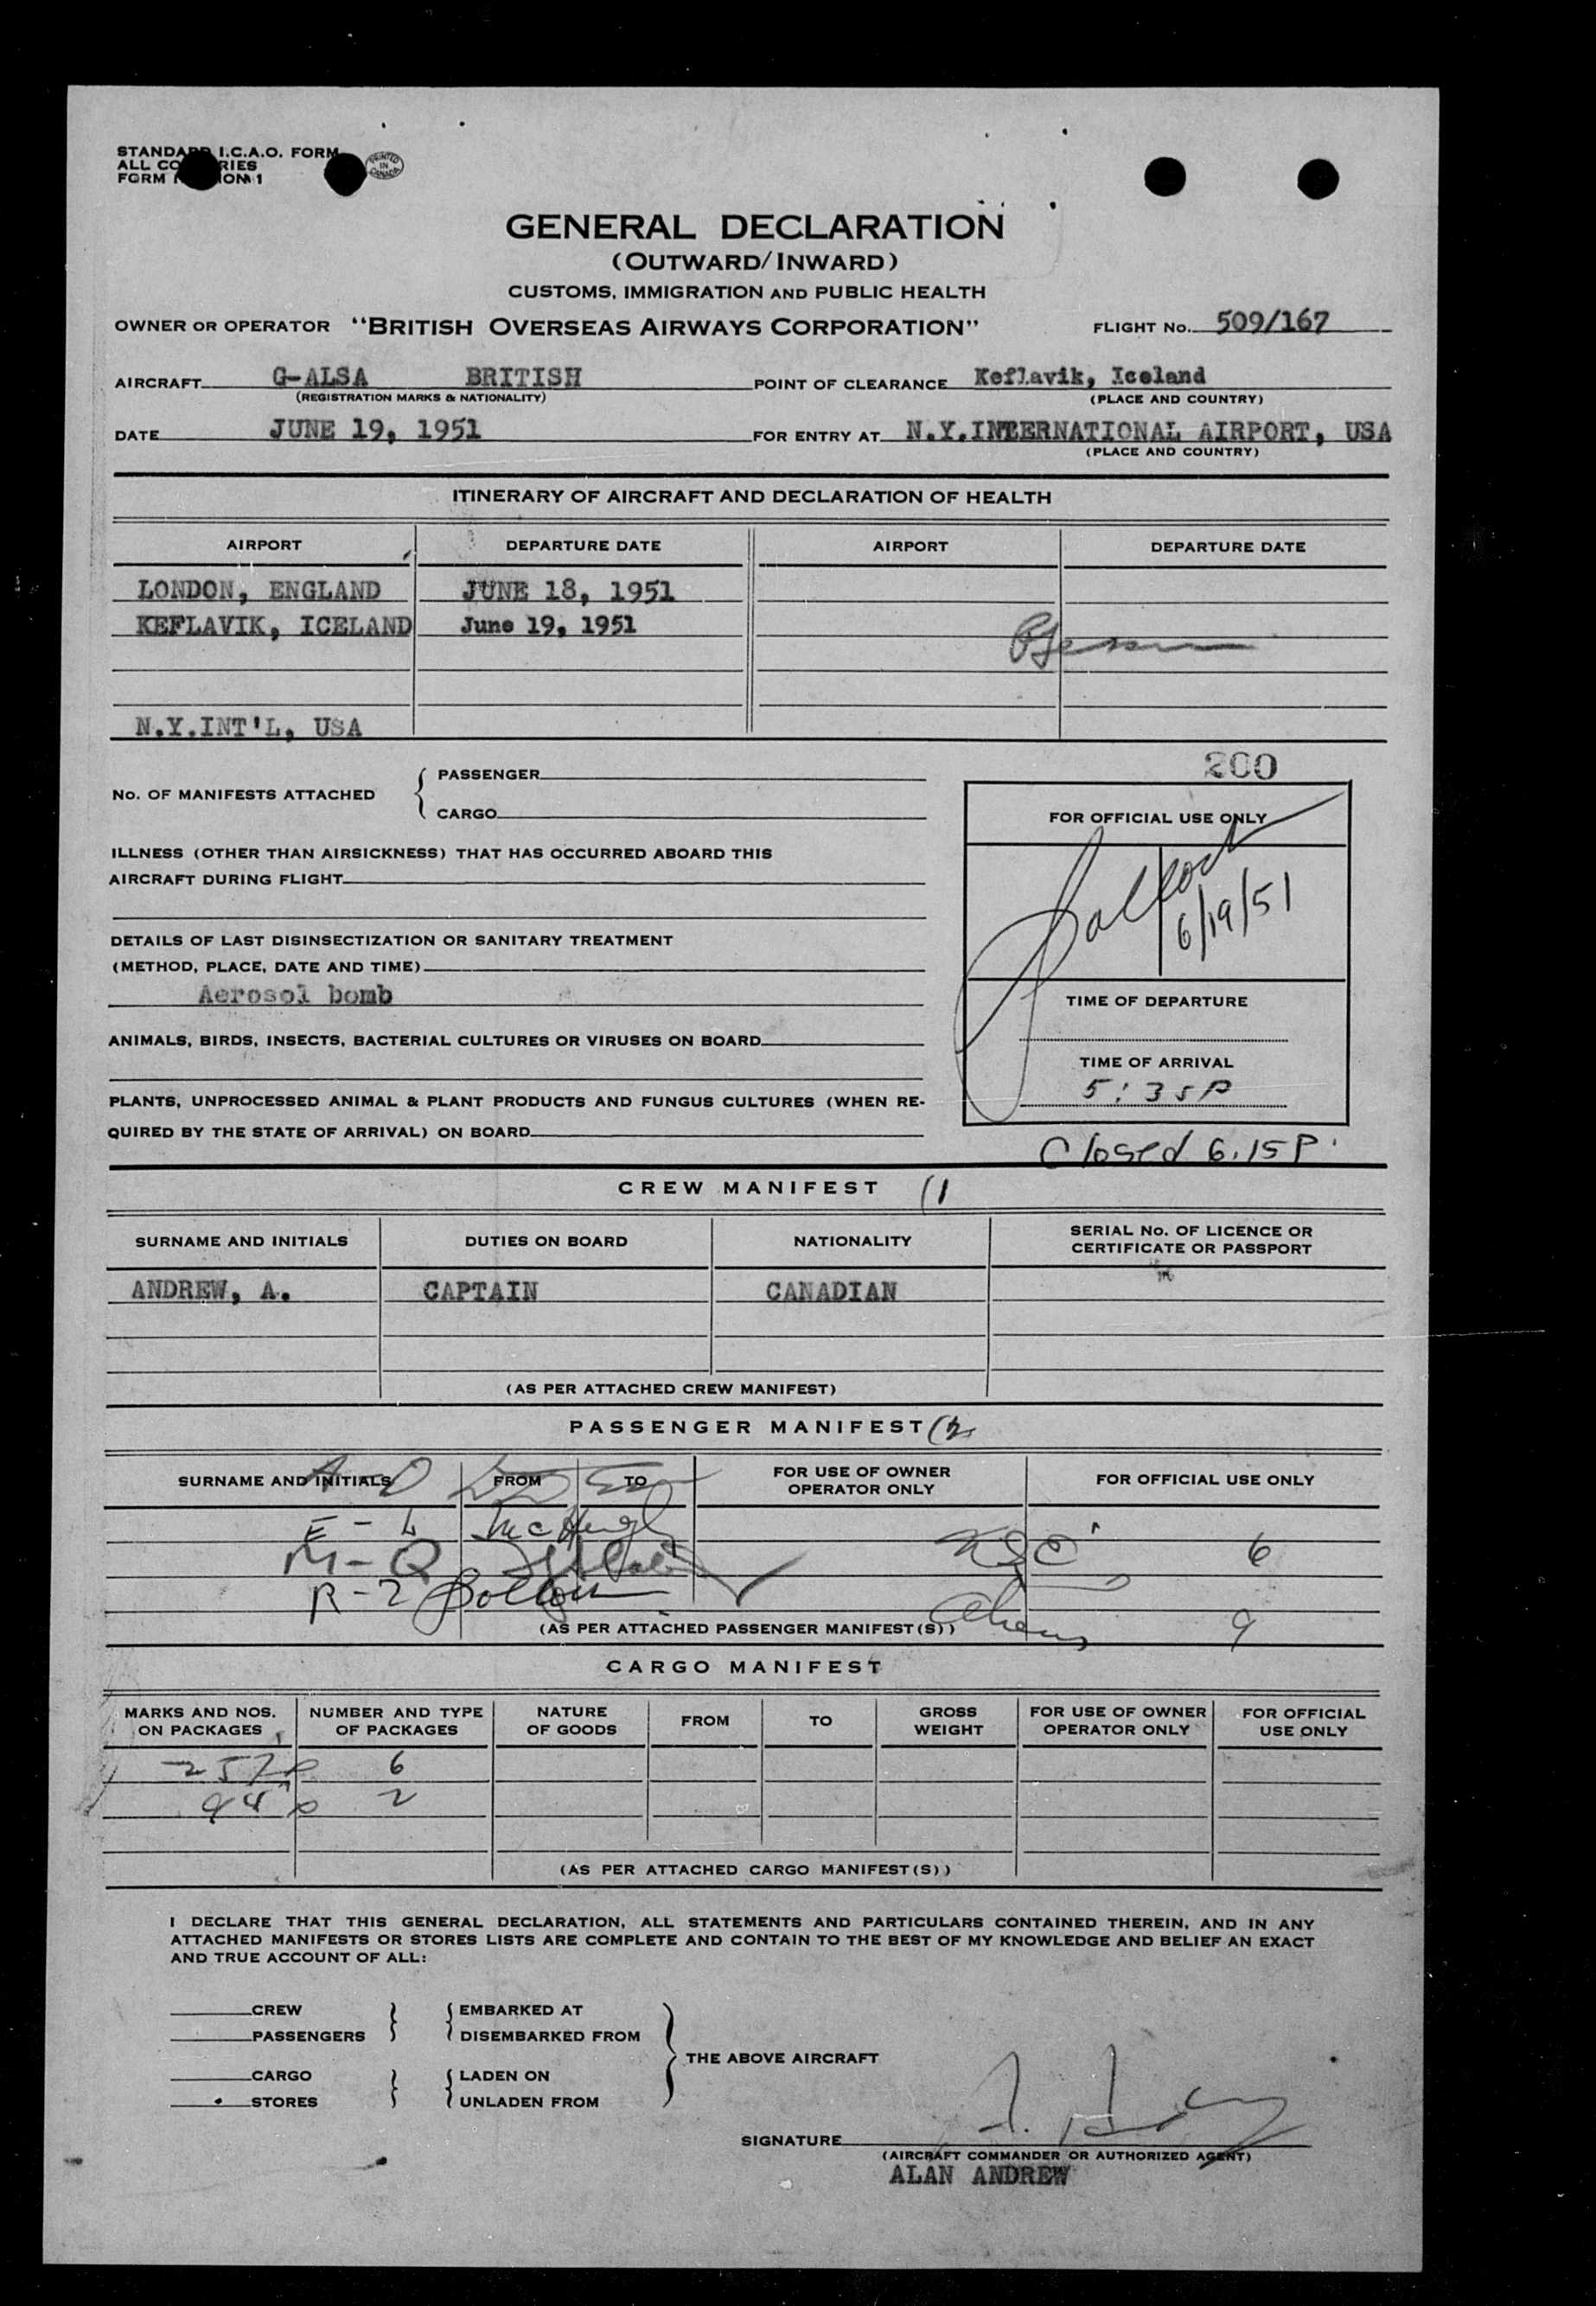 STANDARD I.C.A.O. FORM
ALL CO RIES
FORM ION 1
PRINTED IN CANADA
GENERAL DECLARATION
(OUTWARD/INWARD)
CUSTOMS, IMMIGRATION AND PUBLIC HEALTH
OWNER OR OPERATOR "BRITISH OVERSEAS AIRWAYS CORPORATION" FLIGHT No. 509/167
AIRCRAFT G-ALSA BRITISH POINT OF CLEARANCE Keflavik, Iceland
(REGISTRATION MARKS & NATIONALITY) (PLACE AND COUNTRY)
DATE JUNE 19, 1951 FOR ENTRY AT N.Y.INTERNATIONAL AIRPORT, USA
(PLACE AND COUNTRY)
ITINERARY OF AIRCRAFT AND DECLARATION OF HEALTH
AIRPORT DEPARTURE DATE AIRPORT DEPARTURE DATE
LONDON, ENGLAND JUNE 18, 1951
KEFLAVIK, ICELAND June 19, 1951
N.Y.INT'L, USA
200
No. OF MANIFESTS ATTACHED { PASSENGER
CARGO
FOR OFFICIAL USE ONLY
ILLNESS (OTHER THAN AIRSICKNESS) THAT HAS OCCURRED ABOARD THIS
AIRCRAFT DURING FLIGHT
6/19/51
DETAILS OF LAST DISINSECTIZATION OR SANITARY TREATMENT
(METHOD, PLACE, DATE AND TIME)
Aerosol bomb
TIME OF DEPARTURE
ANIMALS, BIRDS, INSECTS, BACTERIAL CULTURES OR VIRUSES ON BOARD
TIME OF ARRIVAL
5:35P
PLANTS, UNPROCESSED ANIMAL & PLANT PRODUCTS AND FUNGUS CULTURES (WHEN RE-
QUIRED BY THE STATE OF ARRIVAL) ON BOARD
Closed 6.15P.
CREW MANIFEST (1
SURNAME AND INITIALS DUTIES ON BOARD NATIONALITY SERIAL No. OF LICENCE OR
CERTIFICATE OR PASSPORT
ANDREW, A. CAPTAIN CANADIAN
(AS PER ATTACHED CREW MANIFEST)
PASSENGER MANIFEST (2
SURNAME AND INITIALS FROM TO FOR USE OF OWNER
OPERATOR ONLY FOR OFFICIAL USE ONLY
A-D
E-L McHugh
M-Q 6
R-Z
(AS PER ATTACHED PASSENGER MANIFEST(S)) 9
CARGO MANIFEST
MARKS AND NOS.
ON PACKAGES NUMBER AND TYPE
OF PACKAGES NATURE
OF GOODS FROM TO GROSS
WEIGHT FOR USE OF OWNER
OPERATOR ONLY FOR OFFICIAL
USE ONLY
6
2
(AS PER ATTACHED CARGO MANIFEST(S))
I DECLARE THAT THIS GENERAL DECLARATION, ALL STATEMENTS AND PARTICULARS CONTAINED THEREIN, AND IN ANY
ATTACHED MANIFESTS OR STORES LISTS ARE COMPLETE AND CONTAIN TO THE BEST OF MY KNOWLEDGE AND BELIEF AN EXACT
AND TRUE ACCOUNT OF ALL:
CREW EMBARKED AT
PASSENGERS DISEMBARKED FROM
THE ABOVE AIRCRAFT
CARGO LADEN ON
STORES UNLADEN FROM
SIGNATURE
(AIRCRAFT COMMANDER OR AUTHORIZED AGENT)
ALAN ANDREW